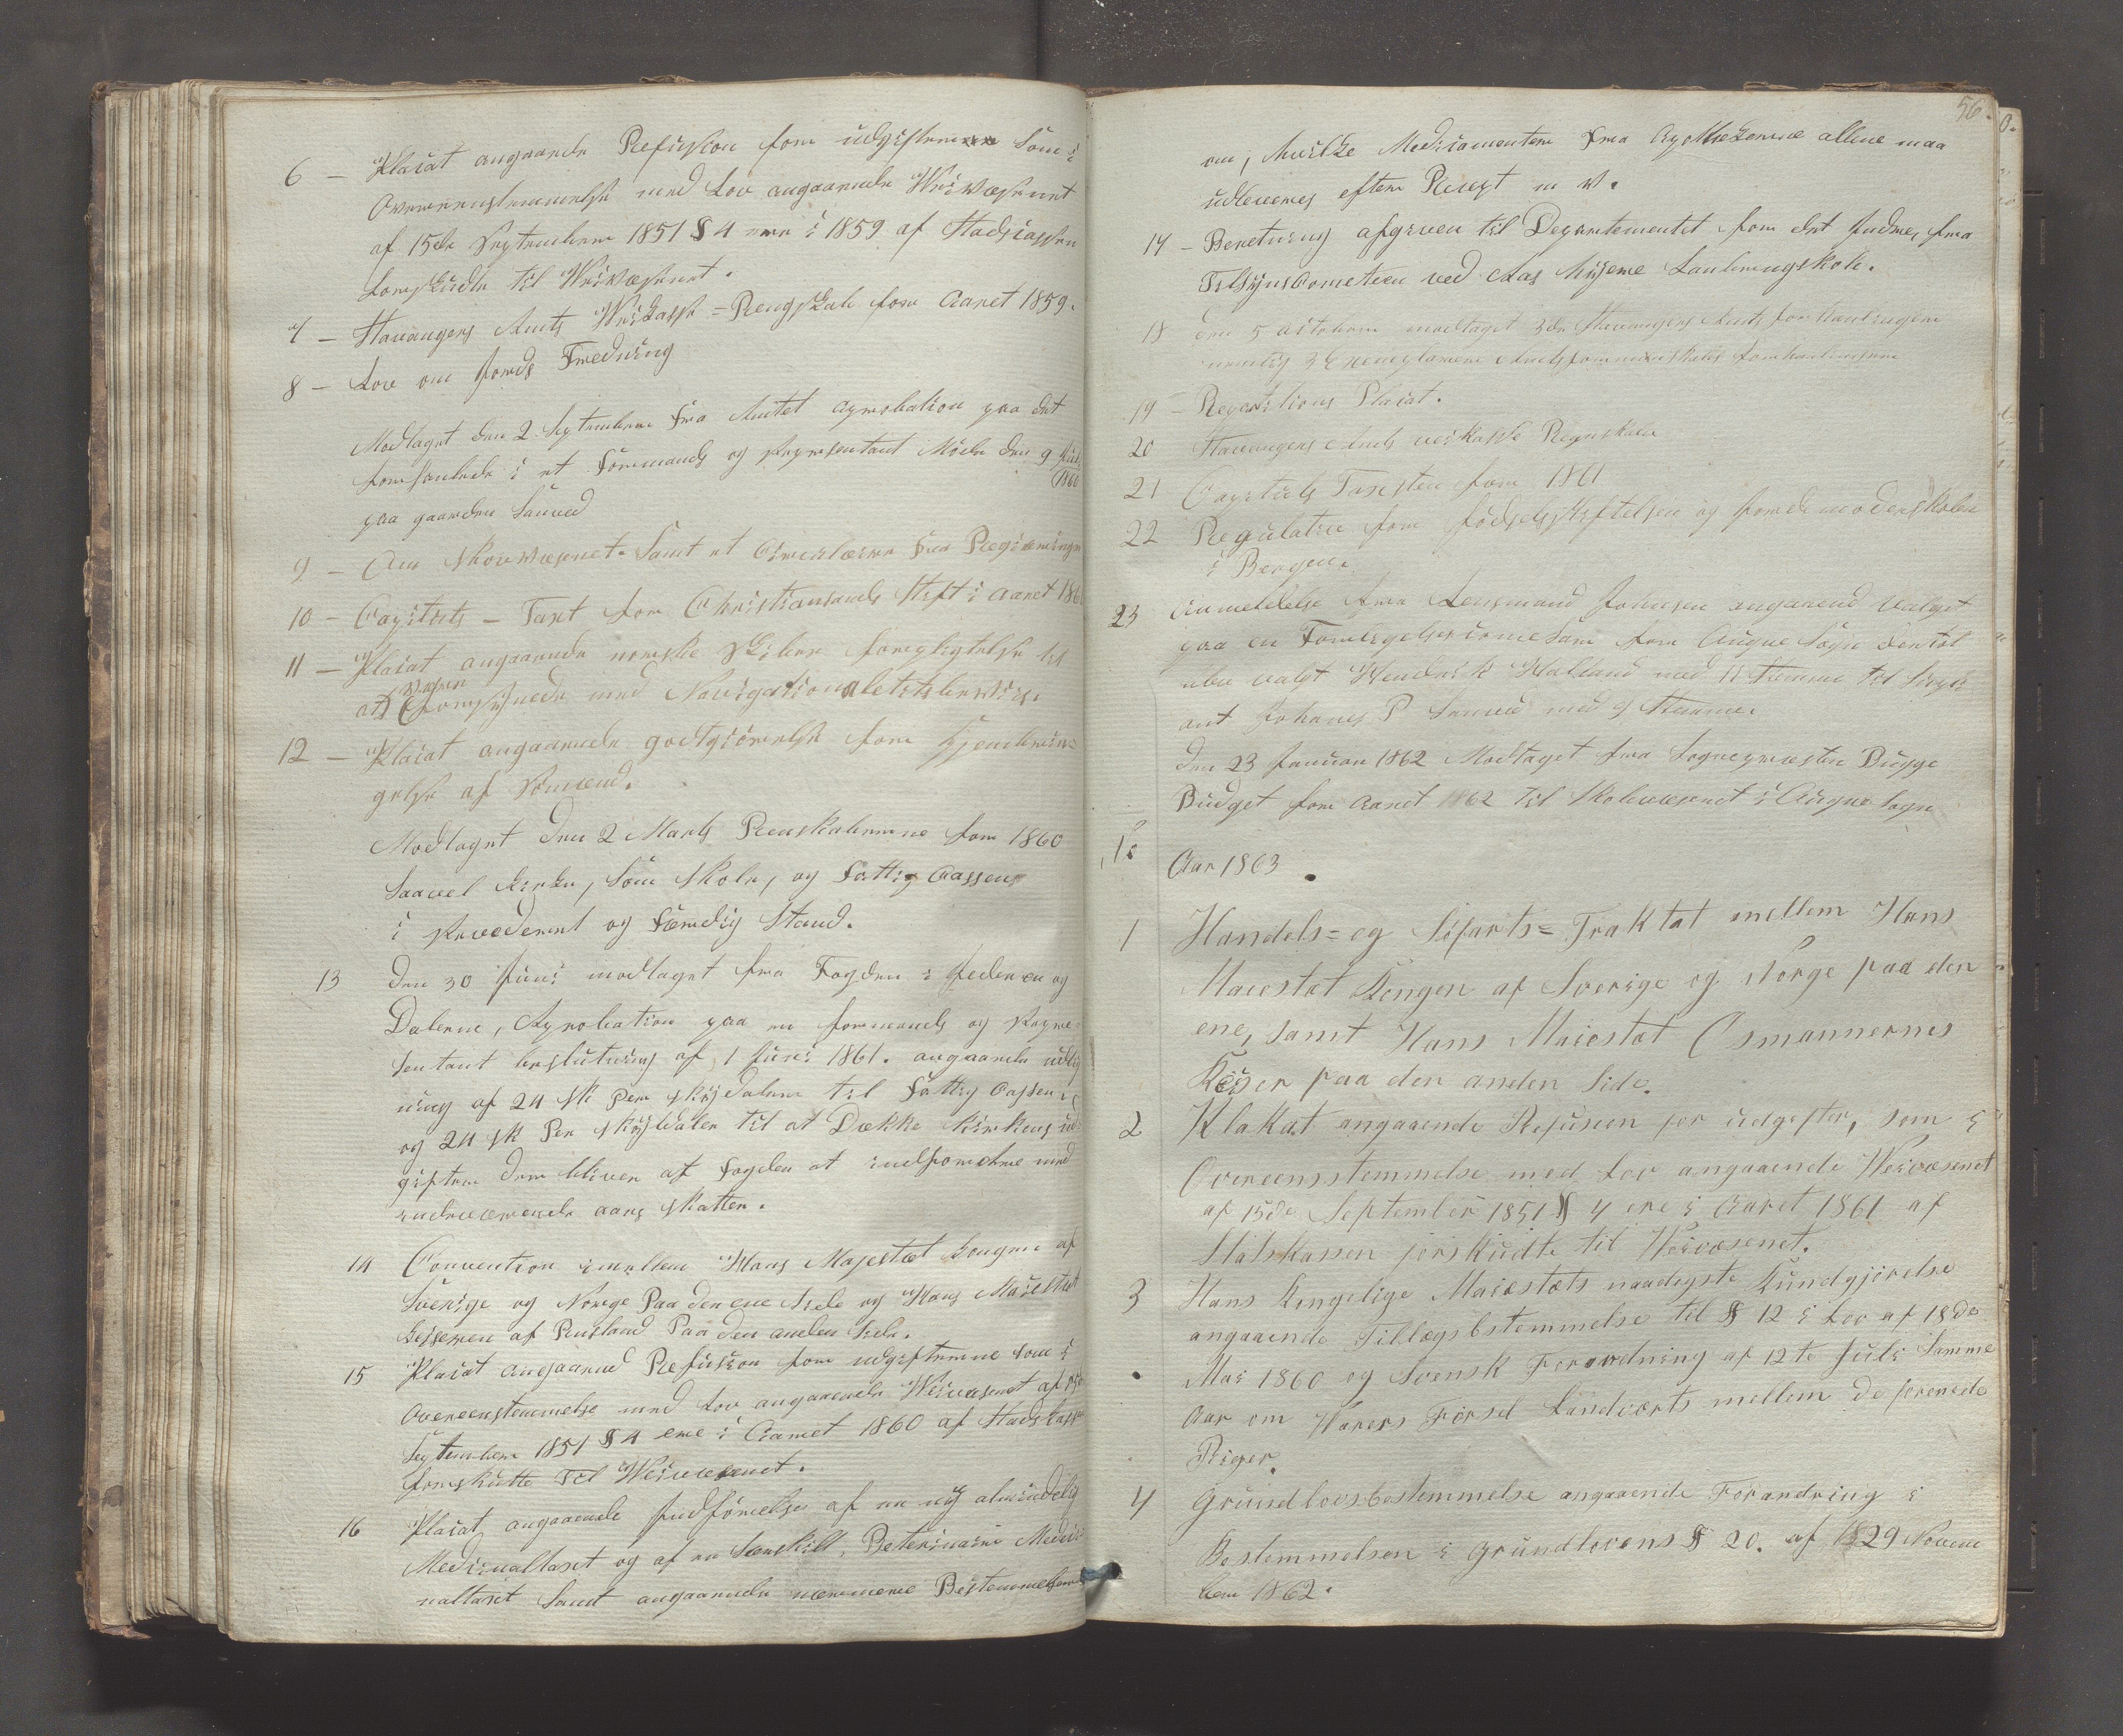 6 – Placat angaaende Refusion for udgifterne som i
Overeenstemmelse med Lov angaaende Veivæsenet
af 15de September 1851 § 4 ere i 1859 af Stadscassen
forskudte til Veivæsenet.
7 – Stavangers Amts Veikasse-Rengskab for Aaret 1859.
8 – Lov om Jords Fredning
Modtaget den 2 September fra Amtet Aprobation paa det
forhandlede i et Formands og Representant Møde den 9 Juli
1860
paa gaarden Sanved
9 – Om Skovvæsenet. Samt et Circulære fra Regieringen
10 – Capitels-Taxt for Christiansands Stift i Aaret 186
11 – Placat angaaende norske Skibes forpligtelse til
at være forsÿnede med Navigationaletetsbeviis.
12 – Placat angaaende godtgiørelse for hjembrin-
gelse af Sømænd.
Modtaget den 2 Marts Renskaberne for 1860
saavel Kirke, som Skole, og Fattig Cassens
i Revederent og færdig Stand.
13 den 30 Juni modtaget fra Fogden i Jederen og
Dalerne, Aprobation paa en formands og Repre
sentant beslutning af 1 Juni 1861. angaaende udlig
ning af 24 sk Per skÿldaler til Fattig Cassen,
og 24 sk Per skÿldaler til at Dække Kirkens ud-
gifter dem bliver af Fogden at indfordre med
indeværende aars skatter.
14 Convention imellem Hans Majestæt Kongen af
Sverige og Norge Paa den ene Side og Hans Maiestæt
Keiseren af Rusland Paa den anden Side.
15 Placat angaaend Refusion for udgifterne som i
Overeenstemmelse med Lov angaaende Veivæsenet af 15de
September 1851 § 4 ere i Aaret 1860 af Stadskassen
forskutte Til Veivæsenet.
16 Placat angaaende Indførelse af en nÿ almindelig
Medicinaltaxt og af en særskilt, Veterinair Medici
naltaxt samt angaaende nærmere Bestemmelser
56.
om, hvilke Medicamenter fra Apothekerne allene maa
udleveres efter Recept m V.
17 – Beretning afgiven til Departementet for det Indre, fra
Tilsÿns Cometeen ved Aas høiere Landbrugskole.
18 den 5 October modtaget 3de Stavangers Amts forhandlinger
nemlig 3 Exemplarer Amtsformandskabs forhandlingerne
19 – Repartitions Placat.
20 Stavangers Amts veikasse Regnskaber
21 Capituls Taxsten for 1861
22 Regulativ for fødselsstiftelsen og Jordemoderskolen
i Bergen.
23 Anmeldelse fra Lensmand Johnsen angaaend Valget
paa en Forligelsescomesair for Augne Sogn dertil
blev valgt Hendrik Halland med 11 Stemme til Supli
ant Johanes P Sanved med 9 Stemme.
den 23 Januar 1862 Modtaget fra Sognepresten Bugge
Budget for Aaret 1862 til Skolevæsenet i Augne Sogn
Aar 1863.
1 Handels- og Søfarts-Traktat mellem Hans
Maiestæt Kongen af Sverige og Norge paa den
ene, samt Hans Maiestæt Osmannernes
Keiser paa den anden Side.
2 Plakat angaaende Refusion for udgifter, som i
Overeensstemmelse med Lov angaaende Veivæsenet
af 15de September 1851 § 4 ere i Aaret 1861 af
Statskassen forskudte til Veivæsenet.
3 Hans Kongelige Maiestæts naadigste Kundgjørelse
angaaende Tillægsbstemmelse til § 12 i Lov af 18de
Mai 1860 og Svensk Forordning af 12te Juli samme
Aar om Varers Førsel Landværts mellem de forenede
Riger.
4 Grundlovsbestemmelse angaaende Forandring i
Bestemmelsen i grundlovens § 20. af 29 Novem
ber 1862.